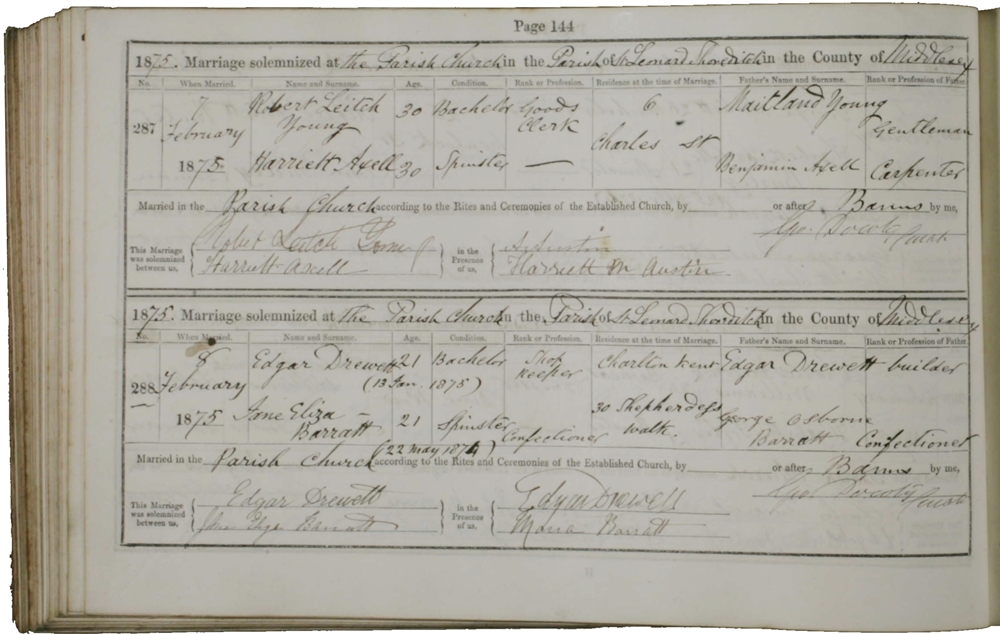 Page 144
1875. Marriage solemnized at the Parish Church in the Parish of St Leonard Shoreditch in the County of Middlesex
No. When Married. Name and Surname. Age. Condition. Rank or Profession. Residence at the time of Marriage. Father's Name and Surname. Rank or Profession of Father.
287 7 February 1875 Robert Leitch Young 30 Bachelor Goods Clerk 6 Charles St Maitland Young Gentleman
Harriett Axell 30 Spinster — Benjamin Axell Carpenter
Married in the Parish Church according to the Rites and Ceremonies of the Established Church, by or after Banns by me,
Geo.
This Marriage was solemnized between us, Robert Leitch Young in the Presence of us, A. Austin
Harriett Axell Harriett M Austin
1875. Marriage solemnized at the Parish Church in the Parish of St Leonard Shoreditch in the County of Middlesex
No. When Married. Name and Surname. Age. Condition. Rank or Profession. Residence at the time of Marriage. Father's Name and Surname. Rank or Profession of Father.
288 8 February 1875 Edgar Drewett 21 (13 Jan. 1875) Bachelor Shop Keeper Charlton Kent Edgar Drewett builder
Jane Eliza Barratt 21 Spinster (22 may 1874) Confectioner 30 Shepherdess Walk. George Osborne Barratt Confectioner
Married in the Parish Church according to the Rites and Ceremonies of the Established Church, by or after Banns by me,
Geo
This Marriage was solemnized between us, Edgar Drewett in the Presence of us, Edgar Drewett
Jane Eliza Barratt Maria Barratt